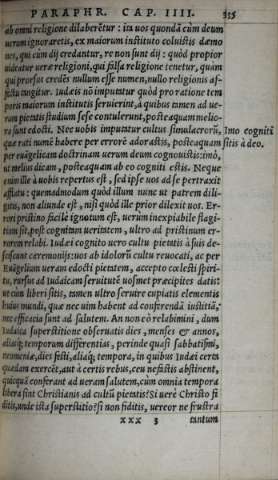 PARAPHR. CAP. IIII. 325
ab omni religione dilaberētur: ita uos quondā cùm deum
uerum ignoraretis, ex maiorum instituto coluistis dæmo
nes, qui cùm dij credantur, re non sunt dij: quòd propior
uideatur ueræ religioni, qui falsa religione tenetur, quàm
qui prorsus credēs nullum esse numen, nullo religionis af-
fectu tangitur. Iudæis nō imputatur quòd pro ratione tem
poris maiorum institutis seruierint, à quibus tamen ad ue-
ram pietatis studium sese contulerunt, posteaquam melio-
ra sunt edocti. Nec uobis imputatur cultus simulacrorū,
quæ rati numē habere per errorē adorastis, posteaquam
per euāgelicam doctrinam uerum deum cognouistis: imò,
ut melius dicam, posteaquam ab eo cogniti estis. Neque
enim ille à uobis repertus est, sed ipse uos ad se pertraxit
afflatu: quemadmodum quòd illum nunc ut patrem dili-
gitis, non aliunde est, nisi quòd ille prior dilexit uos. Er-
rori pristino facilè ignotum est, uerùm inexpiabile flagi-
tium sit, post cognitam ueritatem, ultro ad pristinum er-
rorem relabi. Iudæi cognito uero cultu pietatis à suis de-
sciscant ceremonijs: uos ab idolorū cultu reuocati, ac per
Euāgelium ueram edocti pietatem, accepto cœlesti spiri-
tu, rursus ad Iudaicam seruitutē uosmet præcipites datis:
ut cùm liberi sitis, tamen ultro seruire cupiatis elementis
huius mundi, quæ nec uim habent ad conferendā iustitiā,
nec efficacia sunt ad salutem. An non eò relabimini, dum
Iudaica superstitione obseruatis dies, menses & annos,
aliaq; temporum differentias, perinde quasi sabbatismi,
neomeniæ, dies festi, aliaq; tempora, in quibus Iudæi certa
quædam exercēt, aut à certis rebus, ceu nefastis abstinent,
quicquā conferant ad ueram salutem, cùm omnia tempora
libera sint Christianis ad cultū pietatis? Si uerè Christo fi
ditis, unde ista superstitio? si non fiditis, uereor ne frustra
xxx 3 tantum
Imo cogniti
sitis à deo.